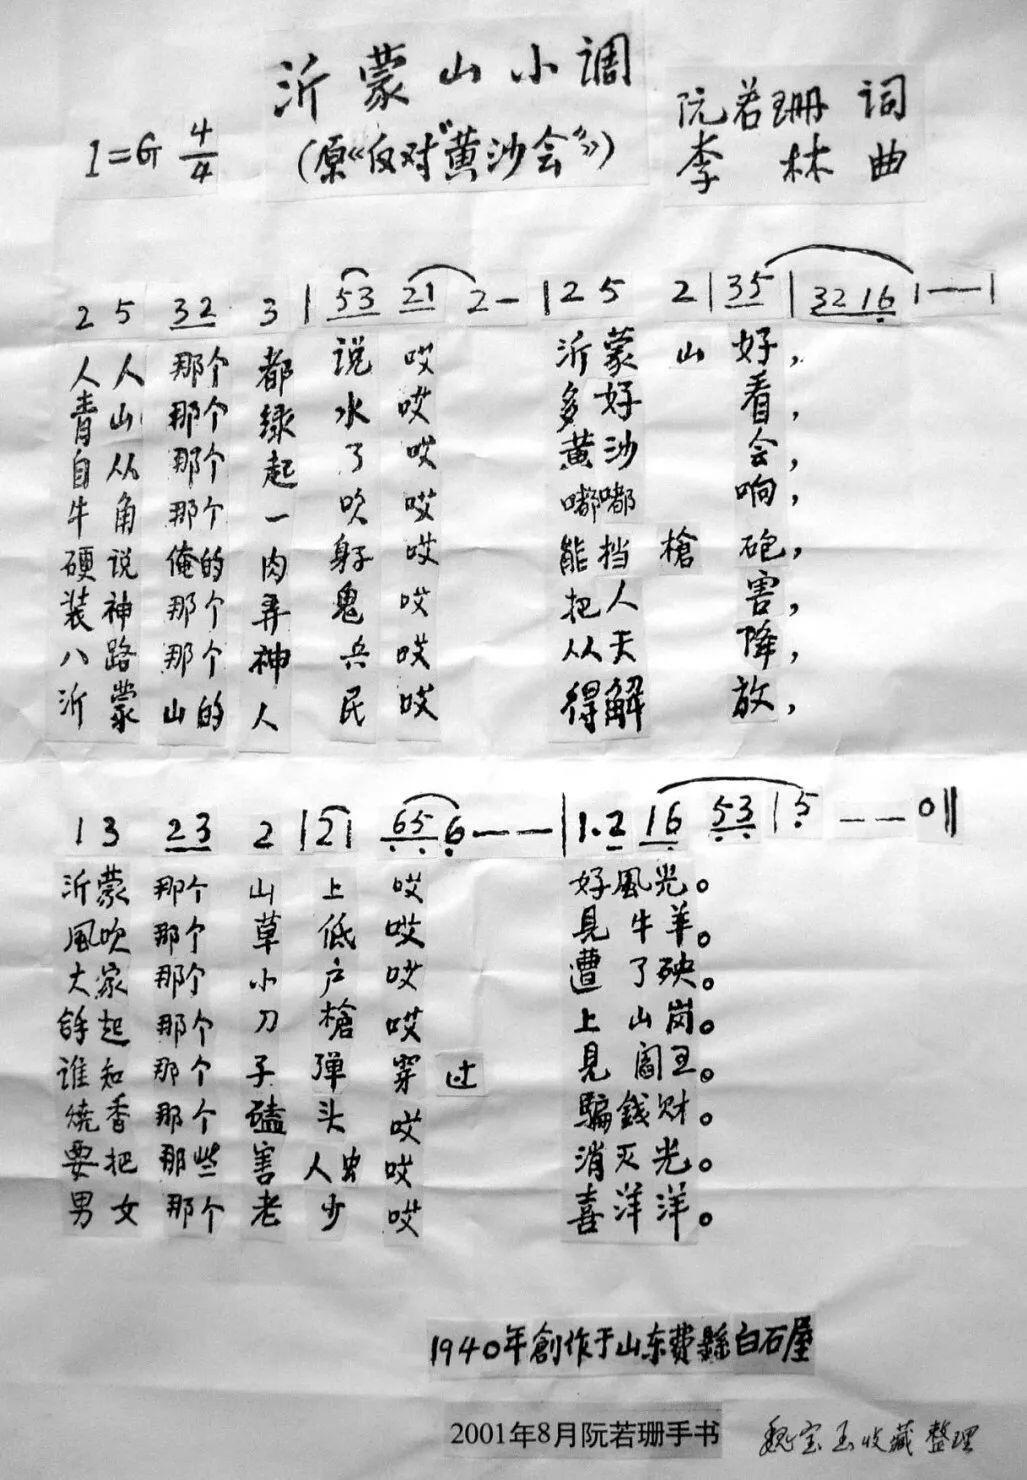 沂蒙山小调
阮若珊 词
1=G 4/4
(原《反对"黄沙会"》)
李林 曲
2 5 32 3 | 53 21 2 — | 2 5 2 | 35 | 32 16 | 1 — — |
人人那个都说哎 沂蒙山好，
青山那个绿水哎 多好看，
自从那个起了哎 黄沙会，
牛角那个一吹哎 嘟嘟响，
硬说俺的肉身子哎 能挡槍砲，
装神那个弄鬼哎 把人害，
八路那个神兵哎 从天降，
沂蒙山的人民哎 得解放，
1 3 23 2 | 21 65 6 — — | 1.2 16 53 | 5 — — 0 ‖
沂蒙那个山上哎 好風光。
風吹那个草低哎 見牛羊。
大家那个小户哎 遭了殃。
拿起那个刀槍哎 上山岗。
谁知那个子弹穿过 見閻王。
燒香那个磕头哎 騙錢财。
要把那些害人虫哎 消灭光。
男女那个老少哎 喜洋洋。
1940年創作于山东费縣白石屋
2001年8月阮若珊手书
魏宝玉收藏整理